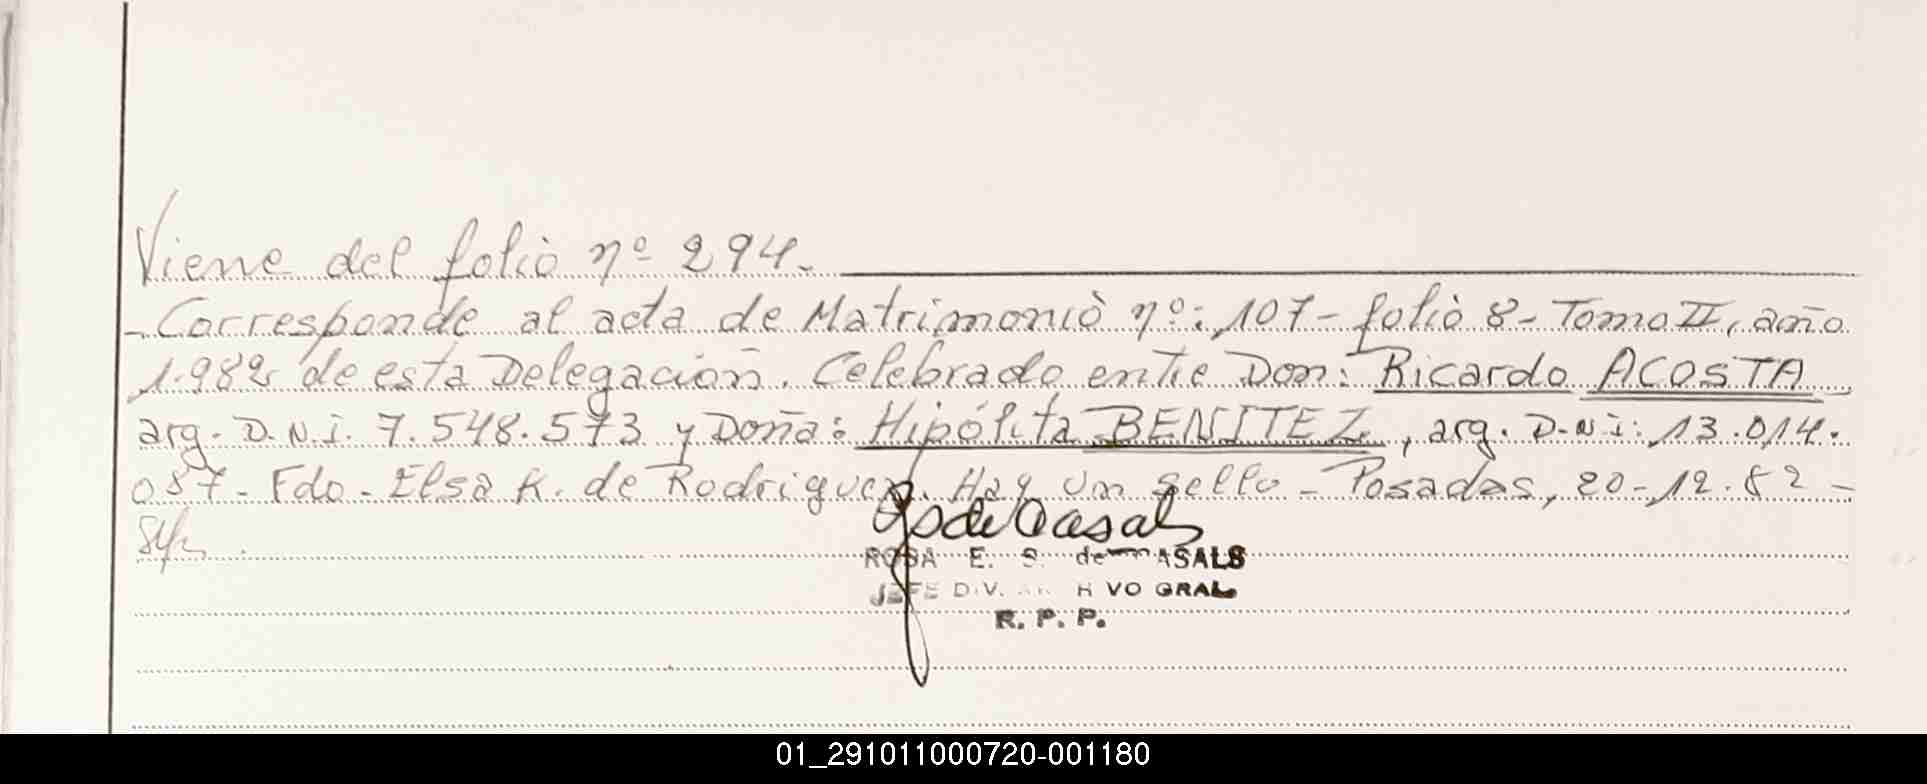 Viene del folio nº 294.
- Corresponde al acta de Matrimonio nº: 107 - folio 8 - Tomo II, año
1.982 de esta Delegación. Celebrado entre Don: Ricardo ACOSTA
arg. D.N.I. 7.548.573 y Doña: Hipólita BENITEZ, arg. D.N.I: 13.014.
087 - Fdo - Elsa K. de Rodriguez. Hay un sello - Posadas, 20-12-82 -
ROSA E. S. de CASALS
JEFE DIV. VO GRAL
R. P. P.
01_291011000720-001180